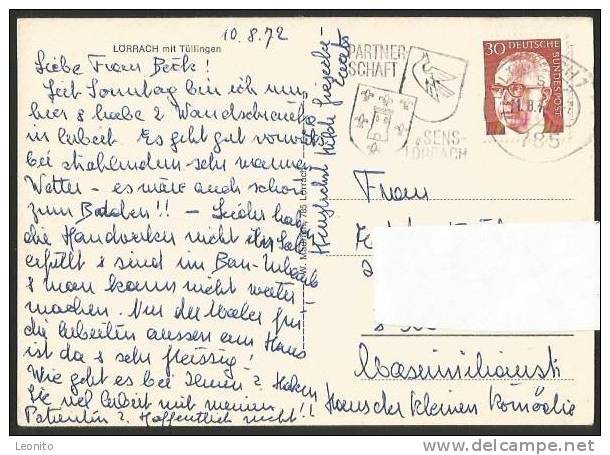 LÖRRACH mit Tüllingen
10.8.72
Liebe Frau Beck!
Seit Sonntag bin ich nun
hier & habe 2 Wandschränke
in Arbeit. Es geht gut vorwärts
bei strahlendem sehr warmen
Wetter - es wäre auch schon
zum Baden!! - Leider haben
die Handwerker nicht ihr Soll
erfüllt & sind im Bau-Urlaub
& man kann nicht weiter
machen. Nur der Maler für
die Arbeiten aussen am Haus
ist da & sehr fleissig!
Wie geht es bei Ihnen? Haben
Sie viel Arbeit mit meinen
Patienten? Hoffentlich nicht!!
Herzlichst Hilde
785 Lörrach
PARTNER-
SCHAFT
SENS-
LÖRRACH
30 DEUTSCHE
BUNDESPOST
785
Frau
Haus der kleinen Komödie
Leonito
www.delcampe.net